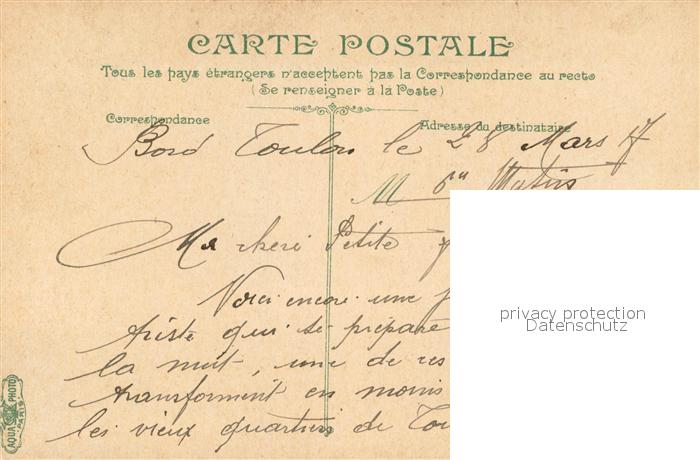 CARTE POSTALE
Tous les pays étrangers n'acceptent pas la Correspondance au recto
(Se renseigner à la Poste)
Correspondance
Adresse du destinataire
Bord Toulon le 28 Mars 17
M
Ma cheri Petite
Voici encore une
triste qui se prépare
la nuit, une de ces
transforment en moins
les vieux quartiers de Tou
privacy protection
Datenschutz
AQUA PHOTO
PARIS